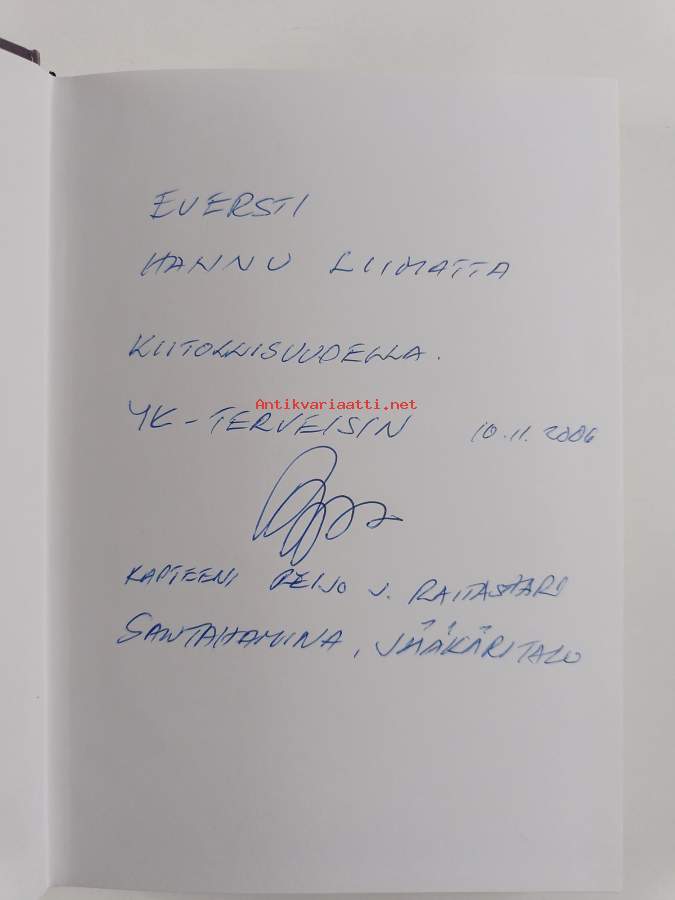 EVERSTI
HANNU LIIMATTA
KIITOLLISUUDELLA.
Antikvariaatti.net
YK-TERVEISIN 10.11.2006
KAPTEENI REIJO J. RAITASAARI
SANTAHAMINA, JÄÄKÄRITALO